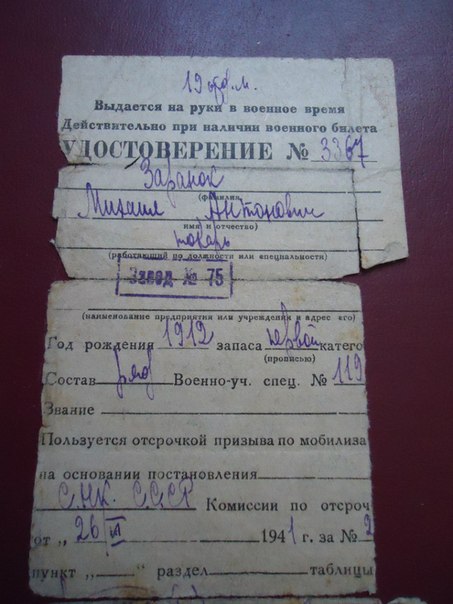 Выдается на руки в военное время
Действительно при наличии военного билета
УДОСТОВЕРЕНИЕ № 3367
Заранок
(фамилия)
Михаил Антонович
имя и отчество)
токарь
(работающий по должности или специальности)
Завод № 75
(наименование предприятия или учреждения и адрес его)
Год рождения 1912 запаса первой катего
(прописью)
Состав ряд Военно-уч. спец. № 119
Звание
Пользуется отсрочкой призыва по мобилиза
на основании постановления
СНК СССР Комиссии по отсроч
от „ 26 " 1941 г. за №
пункт „ " раздел таблицы